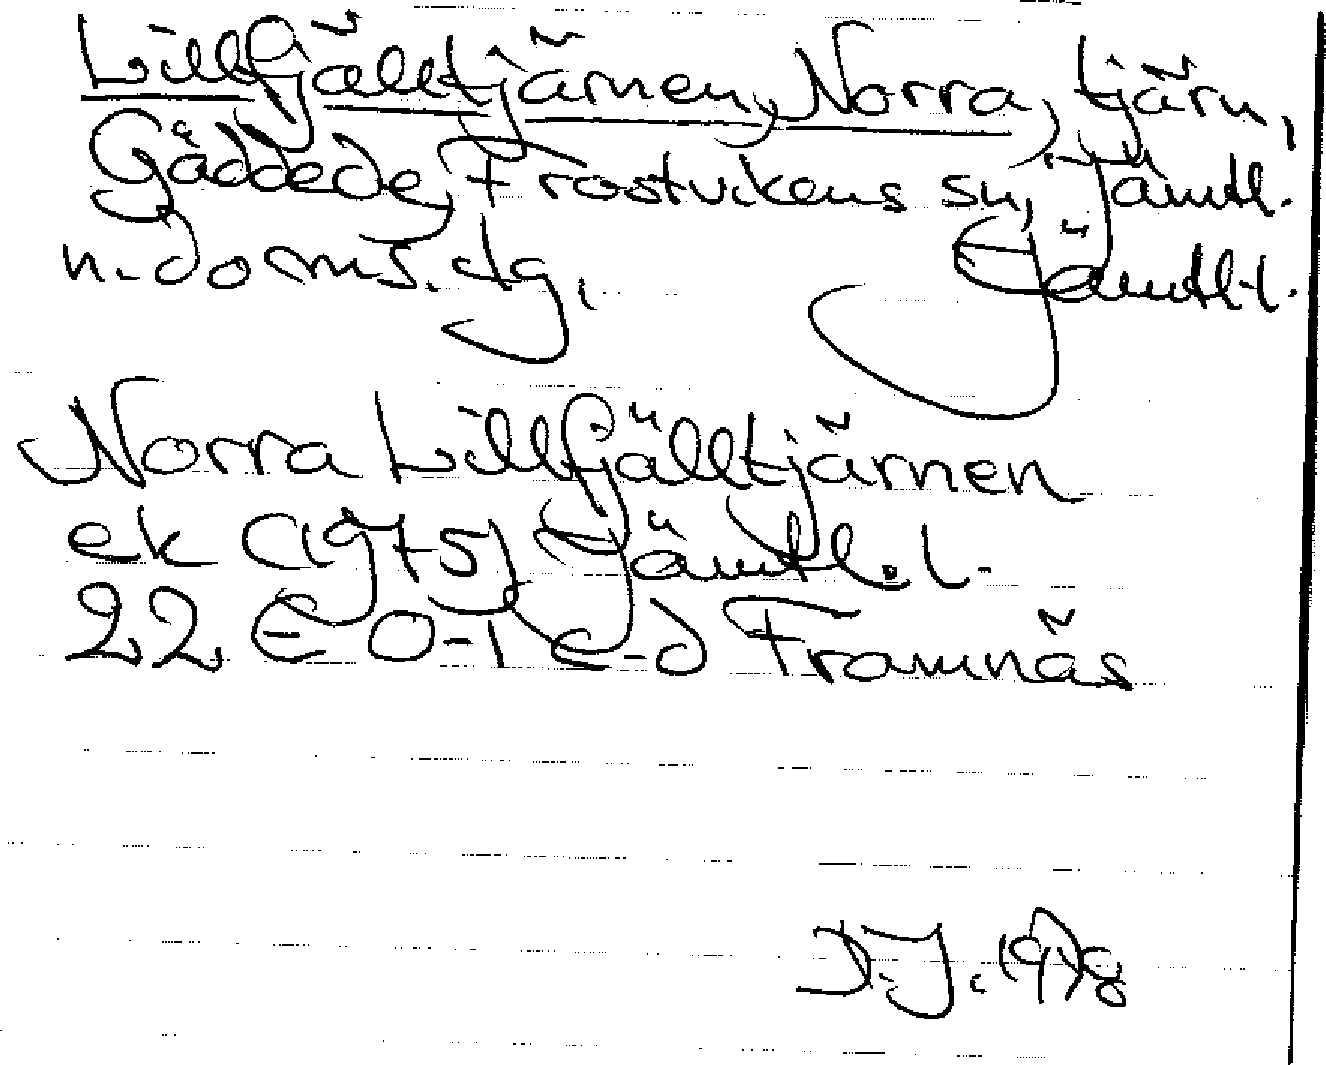 Lillfjälltjärnen, Norra, tjärn,
Gäddede, Frostvikens sn, Jämtl.
n. doms. dg, Jämtl. l.
Norra Lillfjälltjärnen
ek (1975) Jämtl. l.
22 E 0-1 c-d Framnäs
D.J. 1978